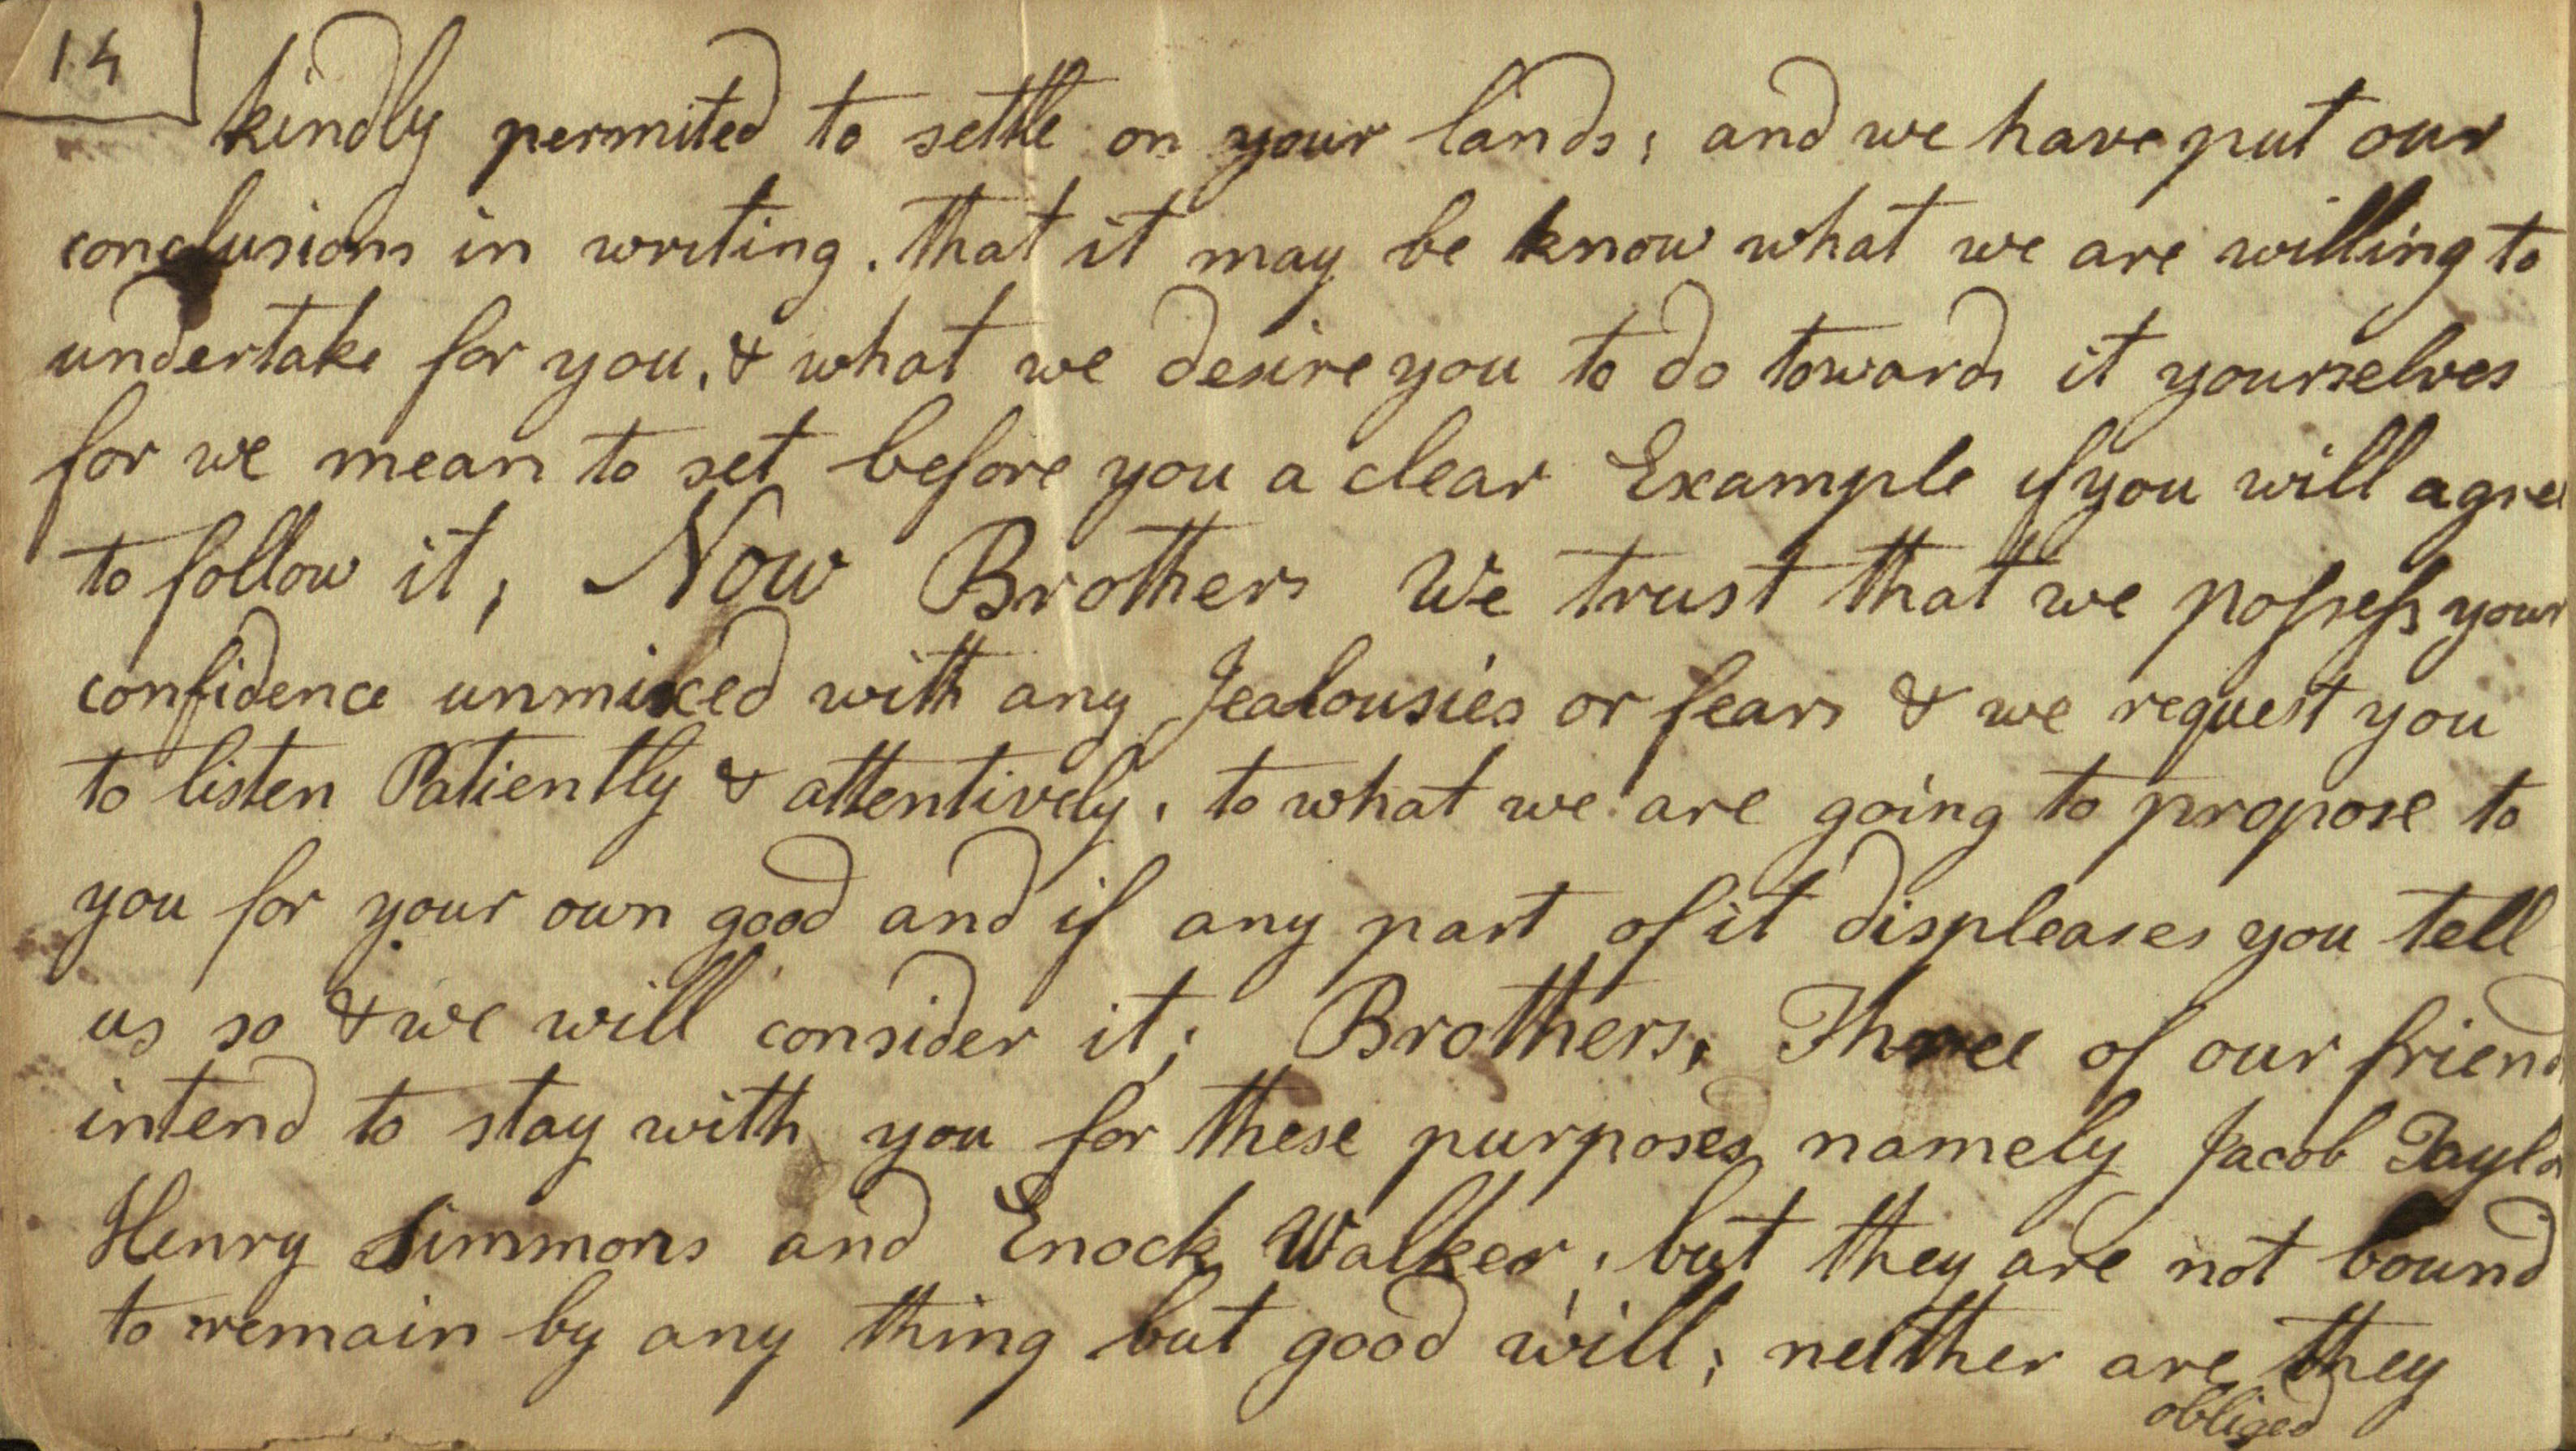 14
kindly permited to settle on your lands; and we have put our
conclusions in writing. that it may be know what we are willing to
undertake for you, & what we desire you to do towards it yourselves
for we mean to set before you a clear Example if you will agree
to follow it; Now Brothers We trust that we possess your
confidence unmixed with any Jealousies or fears & we request you
to listen Patiently & attentively, to what we are going to propose to
you for your own good and if any part of it displeases you tell
us so & we will consider it; Brothers, Three of our friend
intend to stay with you for these purposes namely Jacob Taylo
Henry Simmons and Enock Walker, but they are not bound
to remain by any thing but good will; neither are they
obliged